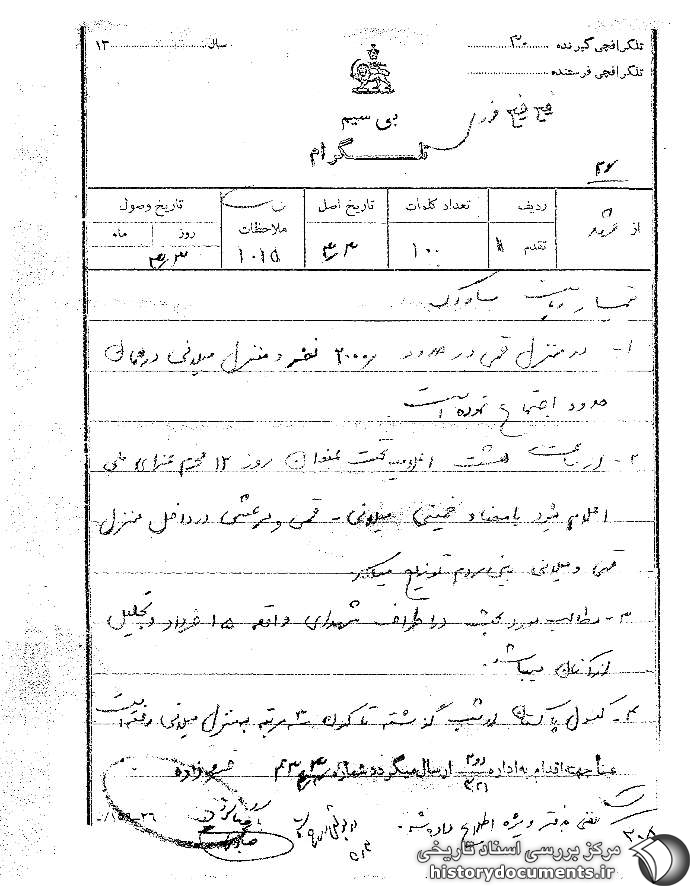 تلگرافچی گیرنده ۳۰
سال ۱۳
تلگرافچی فرستنده
فوری
بی سیم
تلگرام
از
ردیف
تعداد کلمات
تاریخ اصل
ملاحظات
تاریخ وصول
روز
ماه
تقدم
۱۰۰
۳/۴
۱۰۱۵
تیمسار ریاست ساواک
۱- در منزل قمی در حدود ۲۰۰۰ نفر و منزل میلانی در همان
حدود اجتماع نموده است
۲- از ساعت هشت اعلامیه تحت عنوان روز ۱۲ محرم عزای ملی
اعلام میشود بامضاء خمینی میلانی - قمی و مرعشی در داخل منزل
قمی و میلانی بین مردم توزیع میکنند
۳- مطالب مورد بحث در اطراف شهدای واقعه ۱۵ خرداد و تجلیل
از آنان میباشد.
۴- کنسول پاکستان از شب گذشته تاکنون ۳ مرتبه به منزل میلانی رفته است
عیناً جهت اقدام به اداره ارسال میگردد شماره
تلفنی بدفتر ویژه اطلاع داده شد.
۳۰۸
مرکز بررسی اسناد تاریخی
historydocuments.ir